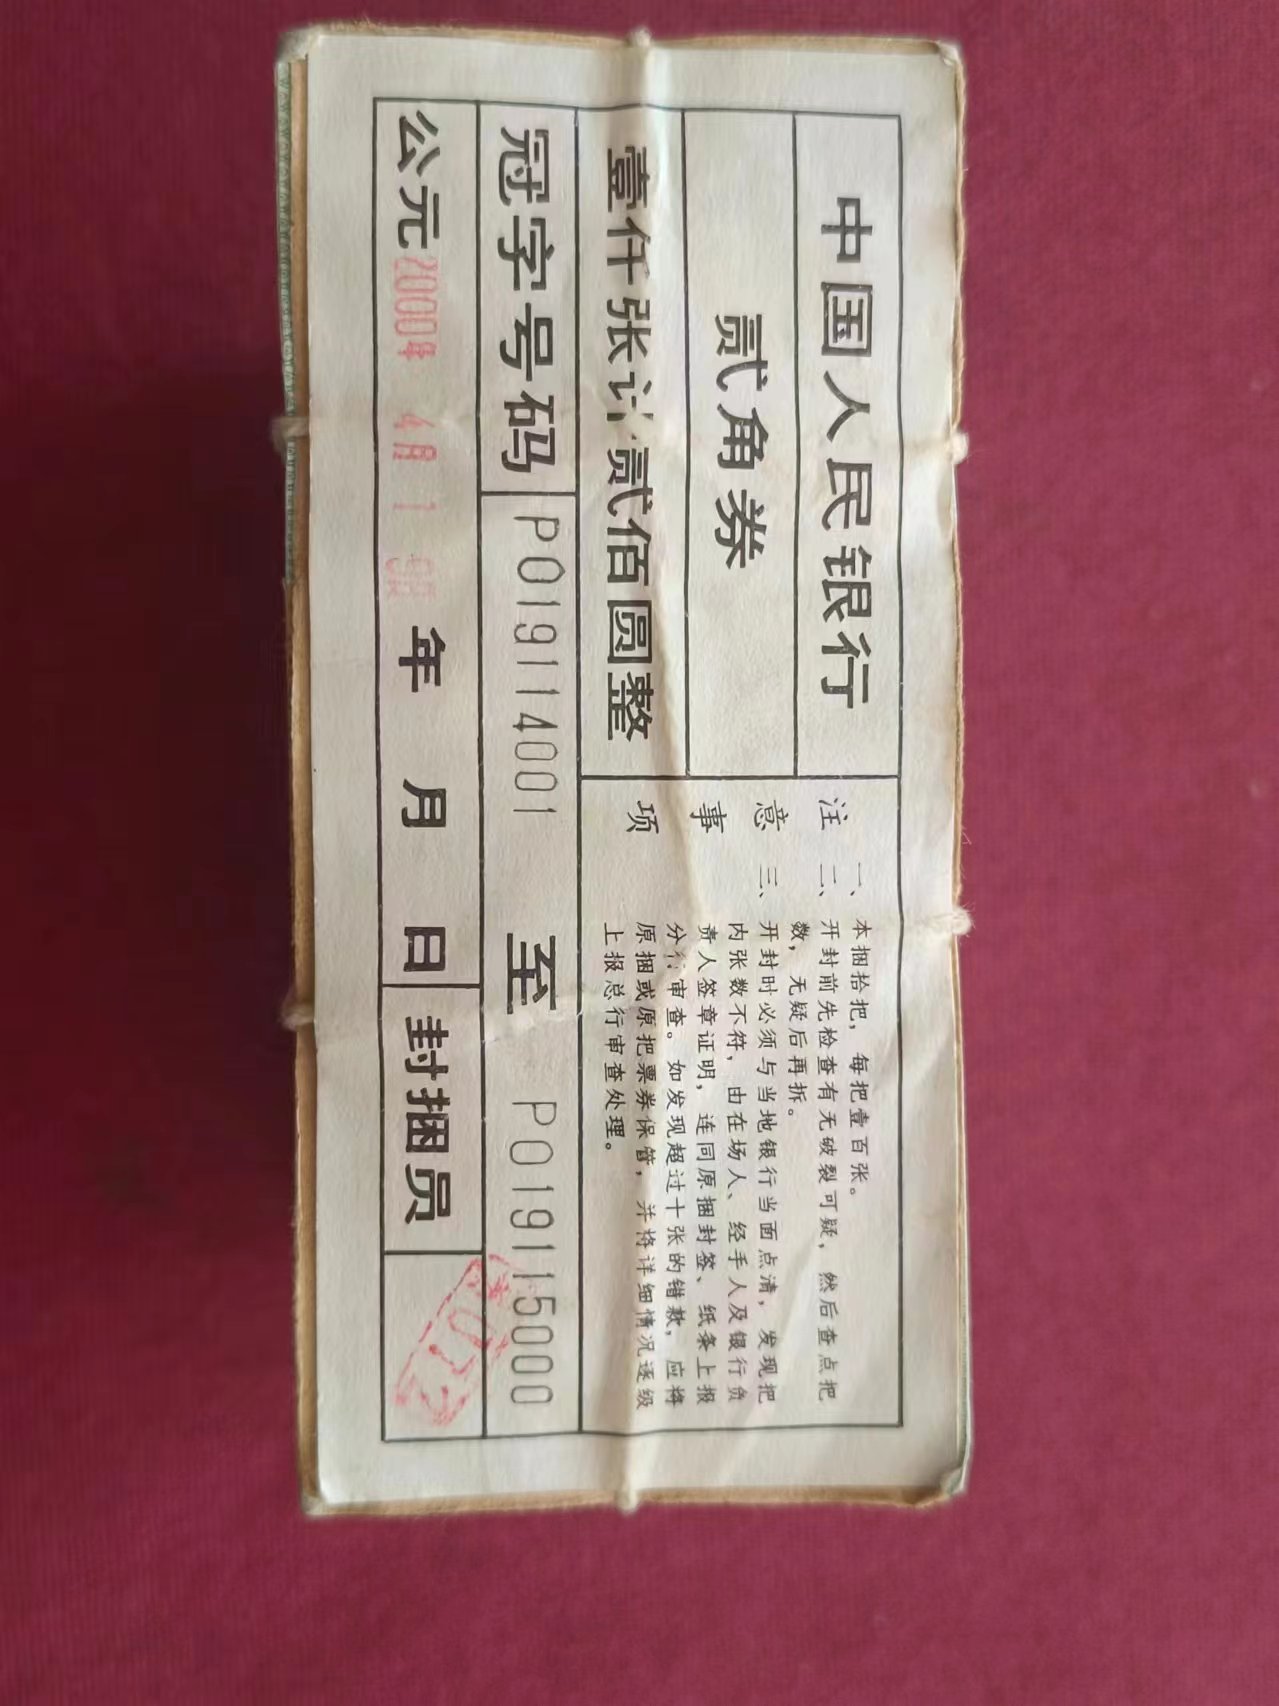 中国人民银行
贰角券
壹仟张计贰佰圆整
注意事项
一、本捆拾把，每把壹百张。
二、开封前先检查有无破裂可疑，然后查点把
数，无疑后再拆。
三、开封时必须与当地银行当面点清，发现把
内张数不符，由在场人、经手人及银行负
责人签章证明，连同原捆封签、纸条上报
分行审查。如发现超过十张的错款，应将
原捆或原把票券保管，并将详细情况逐级
上报总行审查处理。
冠字号码 P019114001 至 P019115000
公元 2000年 4月1 年 月 日 封捆员